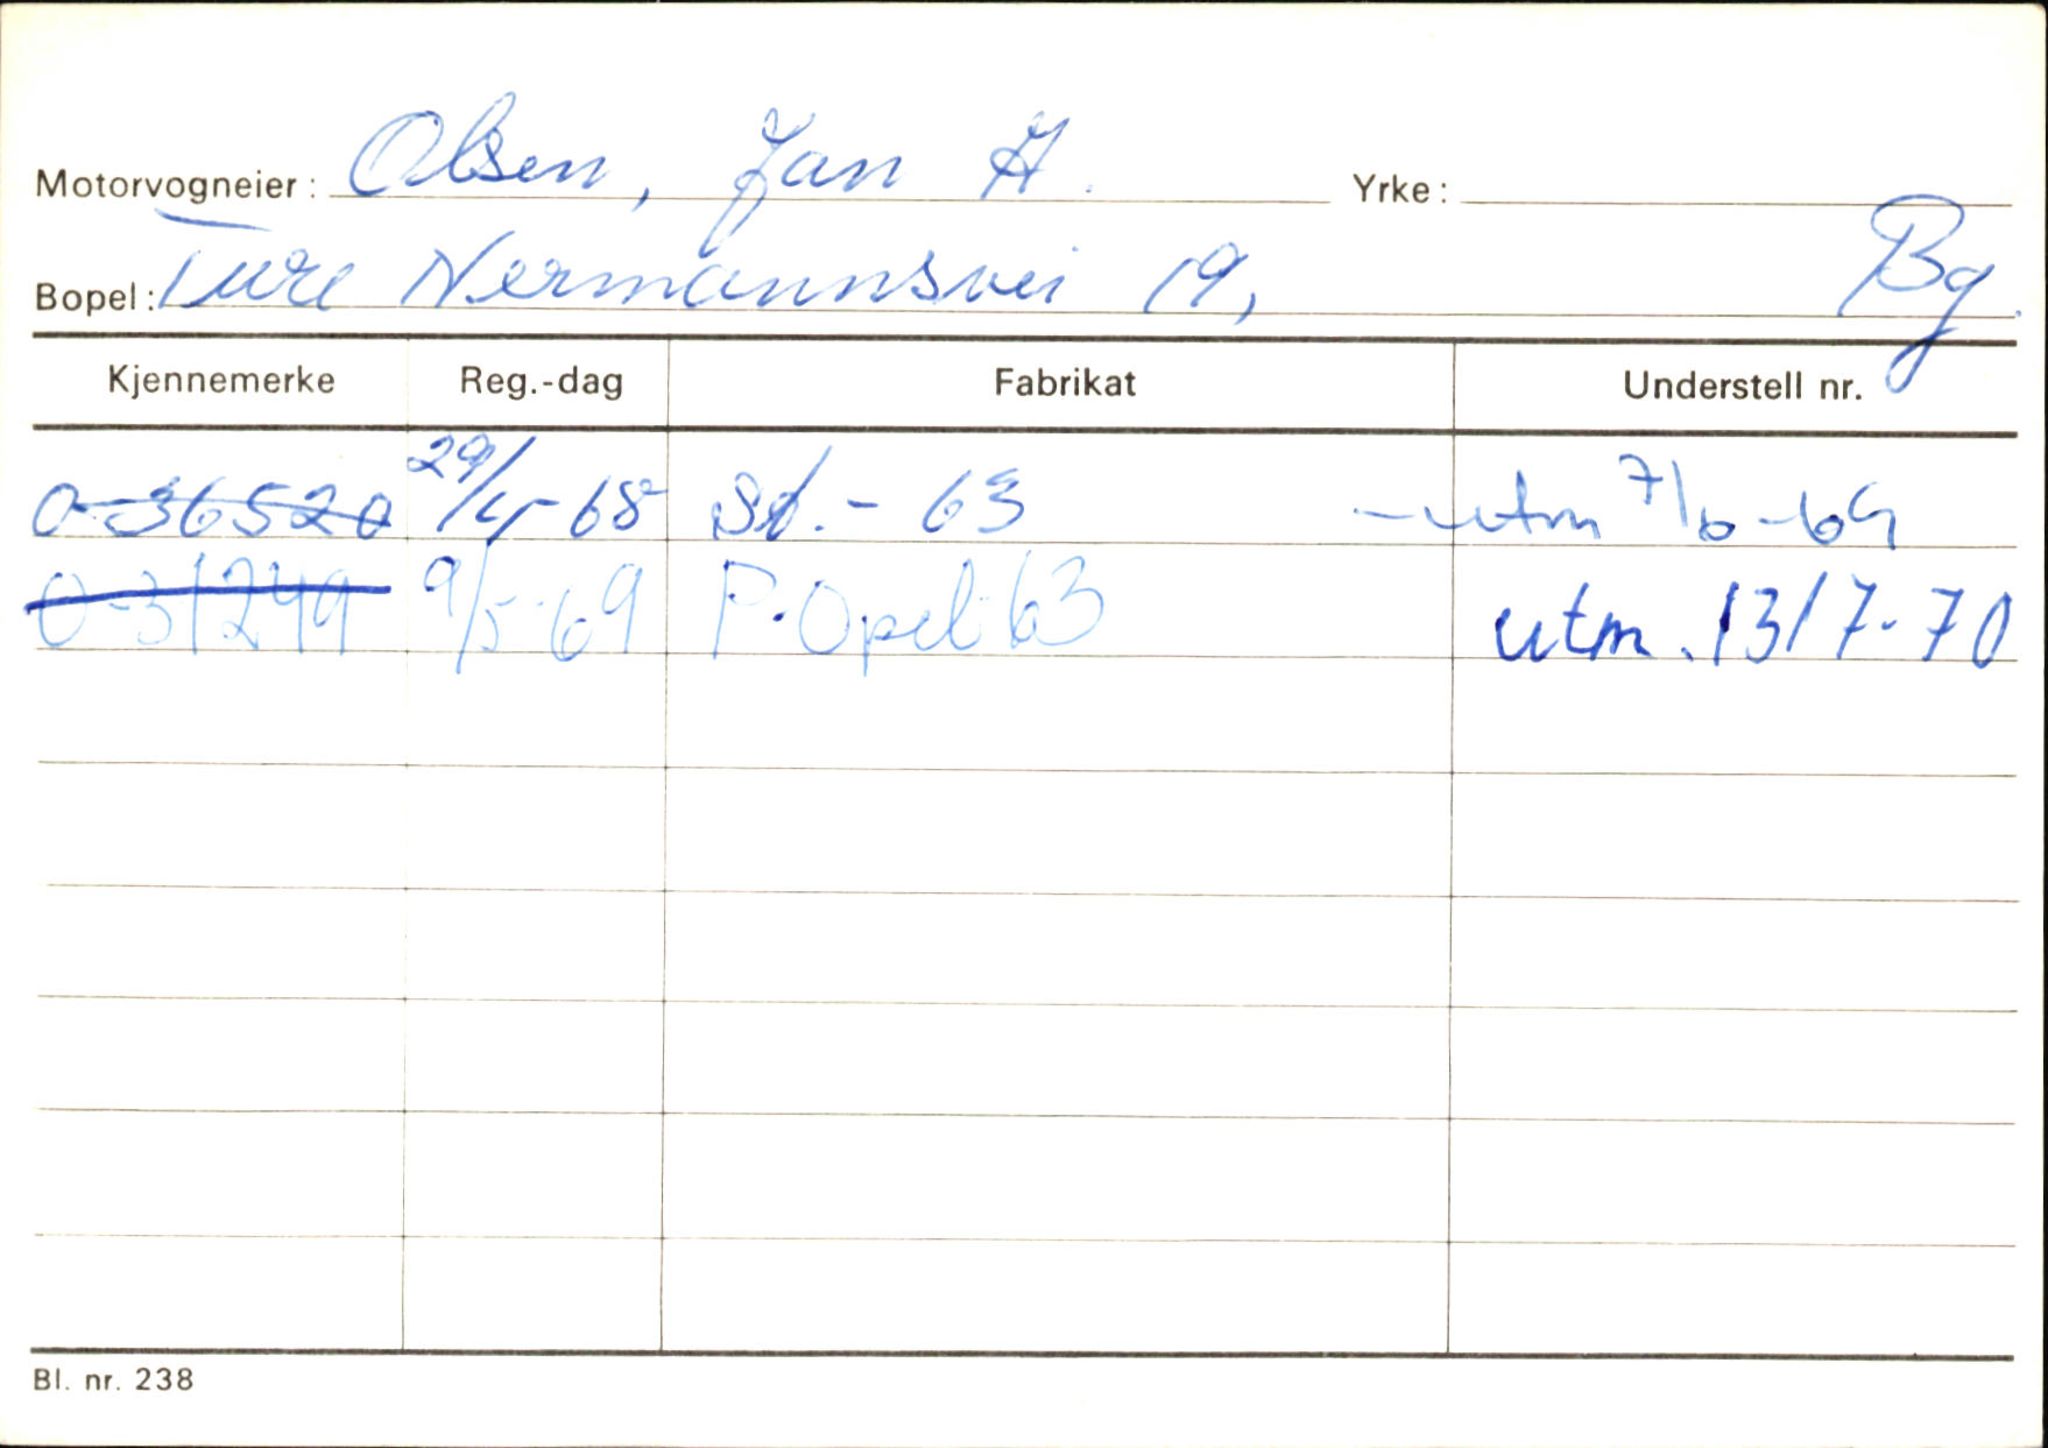 Motorvogneier: Olsen, Jan H. Yrke:
Bopel: Ture Nermannsvei 19, Bg.
Kjennemerke Reg.-dag Fabrikat Understell nr.
O-36520 29/4-68 Sd.- 63 - utm 7/6-69
O-31249 9/5-69 P. Opel 63 utm. 13/7-70
Bl. nr. 238